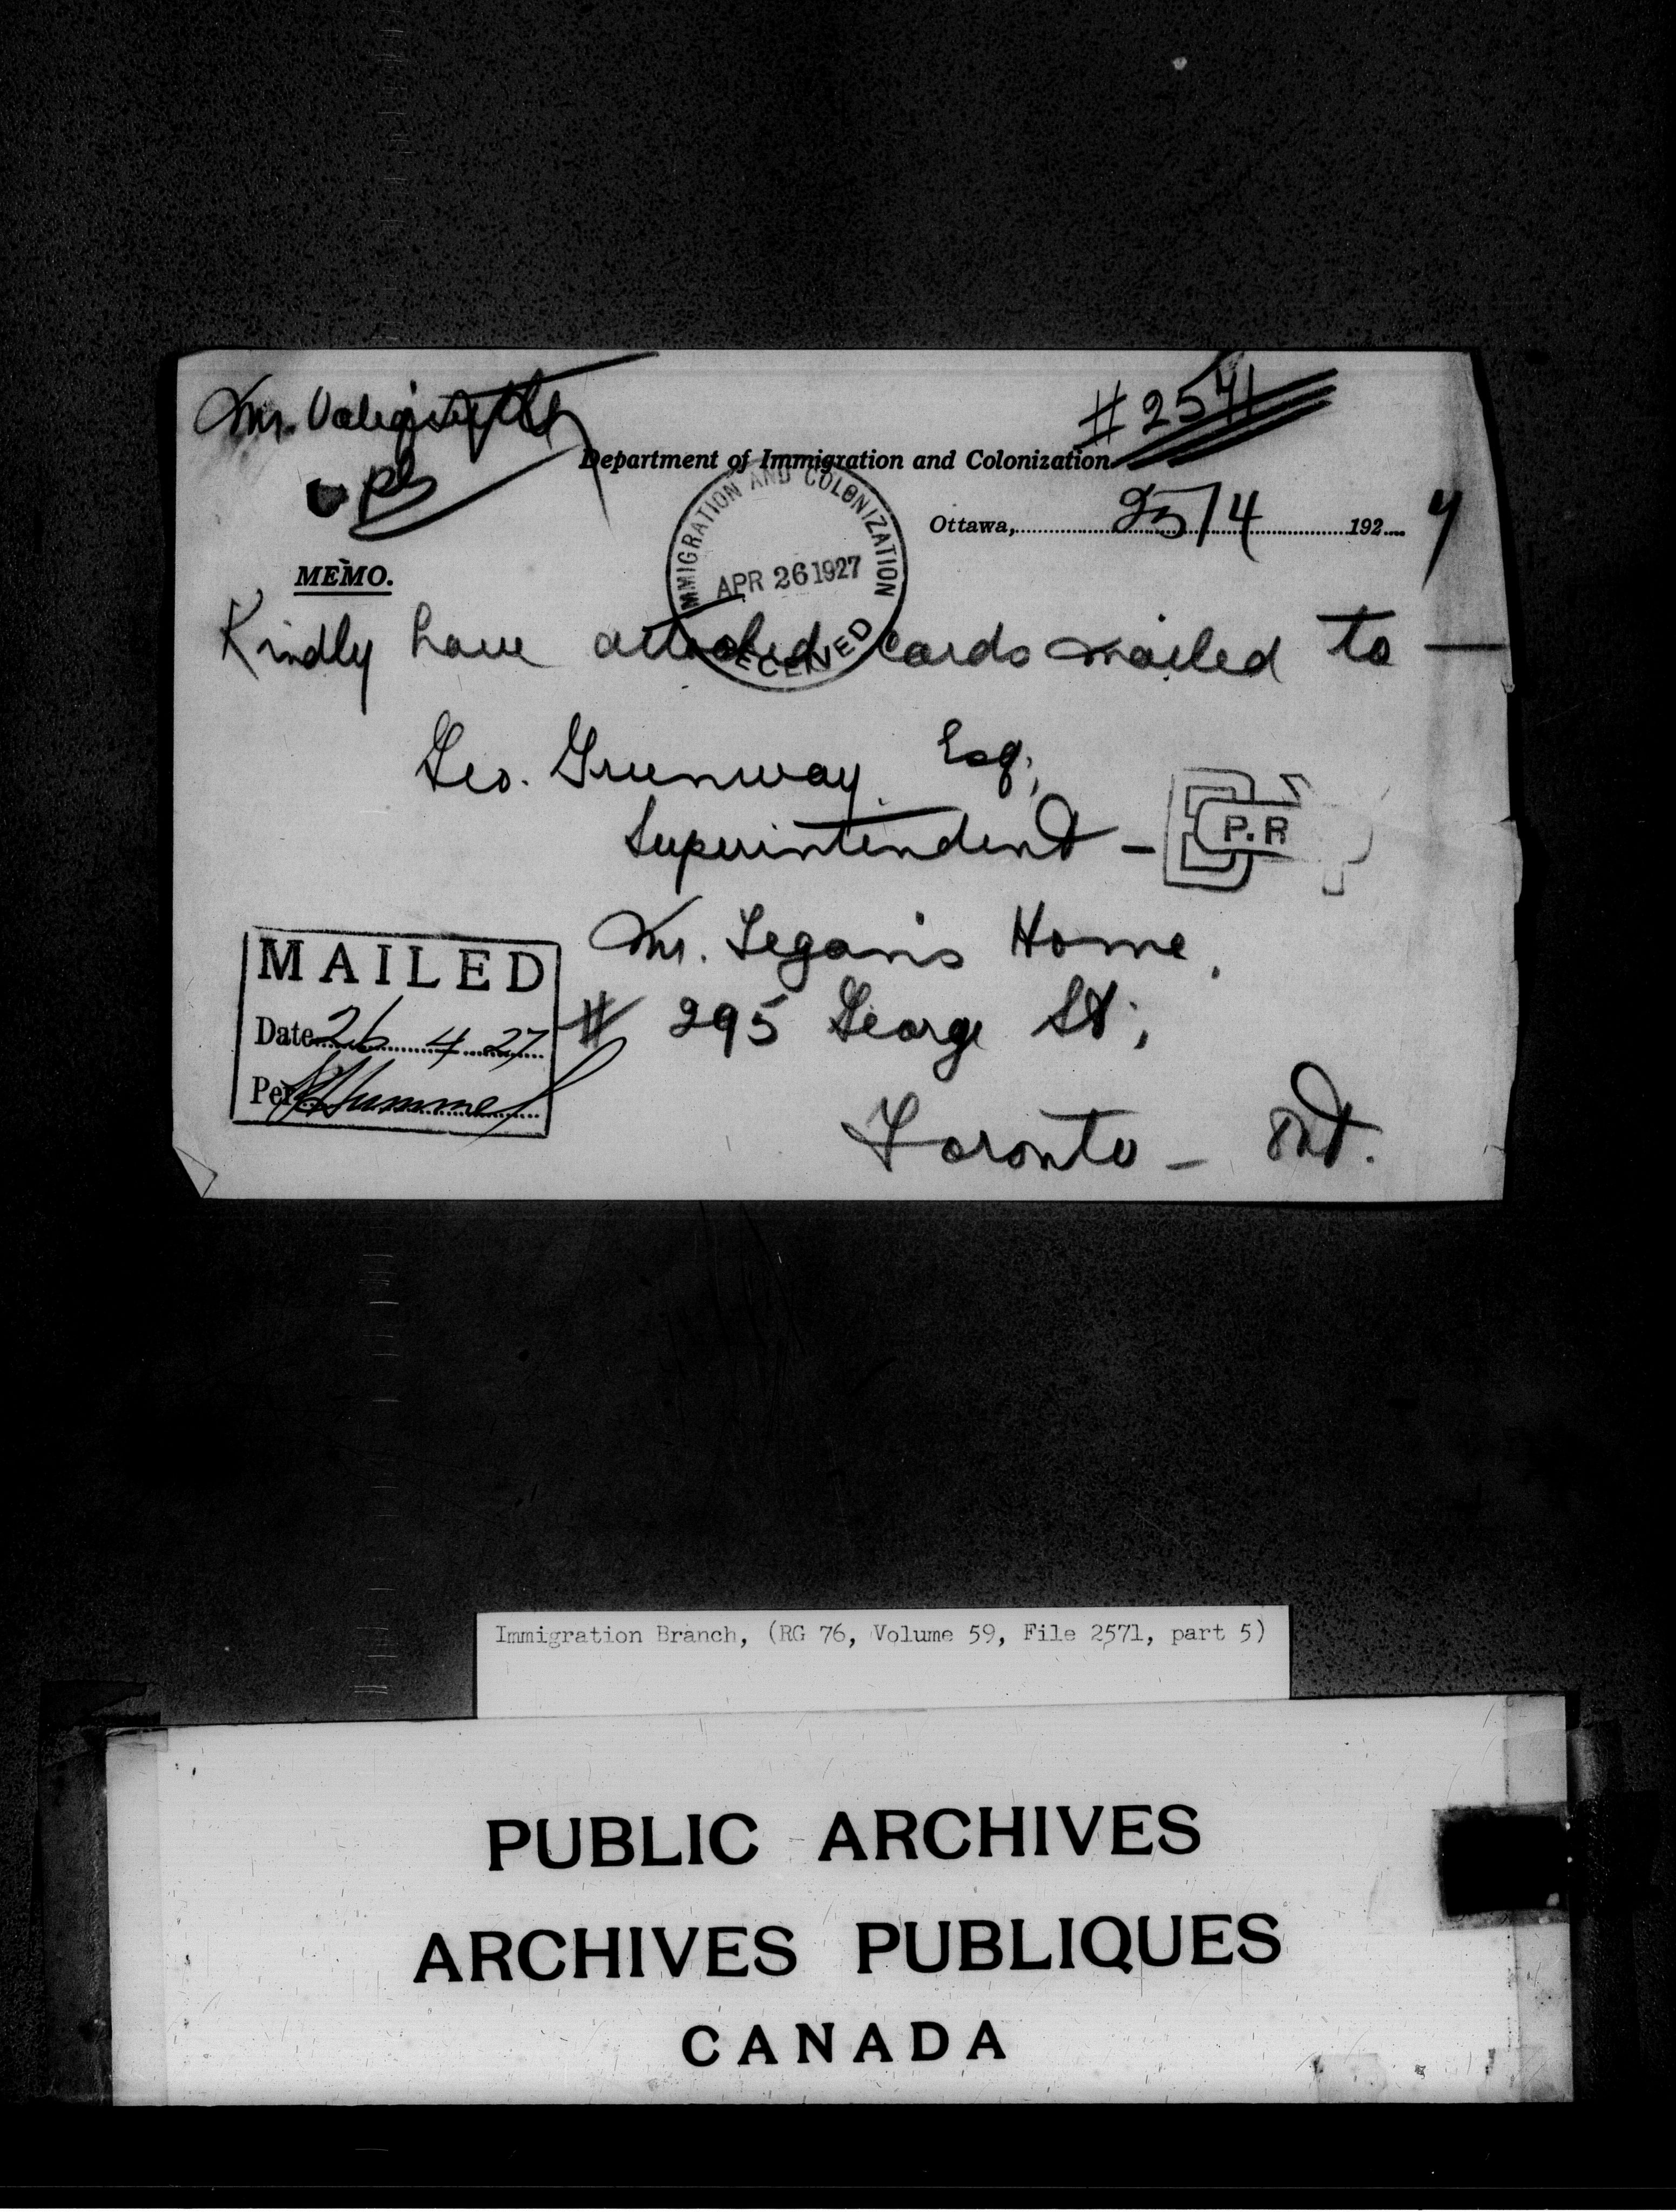 Mr.
#2571
Department of Immigration and Colonization
Ottawa, 25/4 1927
IMMIGRATION AND COLONIZATION
APR 26 1927
RECEIVED
MEMO.
Kindly have attached cards mailed to —
Geo. Greenway Esq.,
Superintendent -
P.R
Mr. Fegan's Home,
# 295 George St;
Toronto - Ont.
MAILED
Date 26 4 27
Per
Immigration Branch, (RG 76, Volume 59, File 2571, part 5)
PUBLIC ARCHIVES
ARCHIVES PUBLIQUES
CANADA